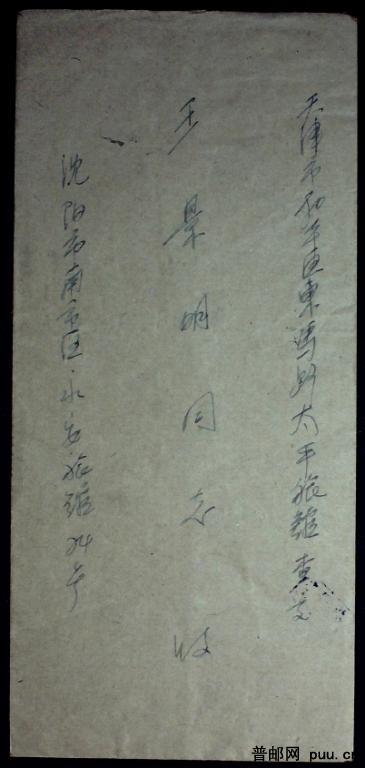 天津市和平区東馬路太平旅館 查交
王景明同志 收
沈阳市南市区永安旅館24号
普邮网 puu.c